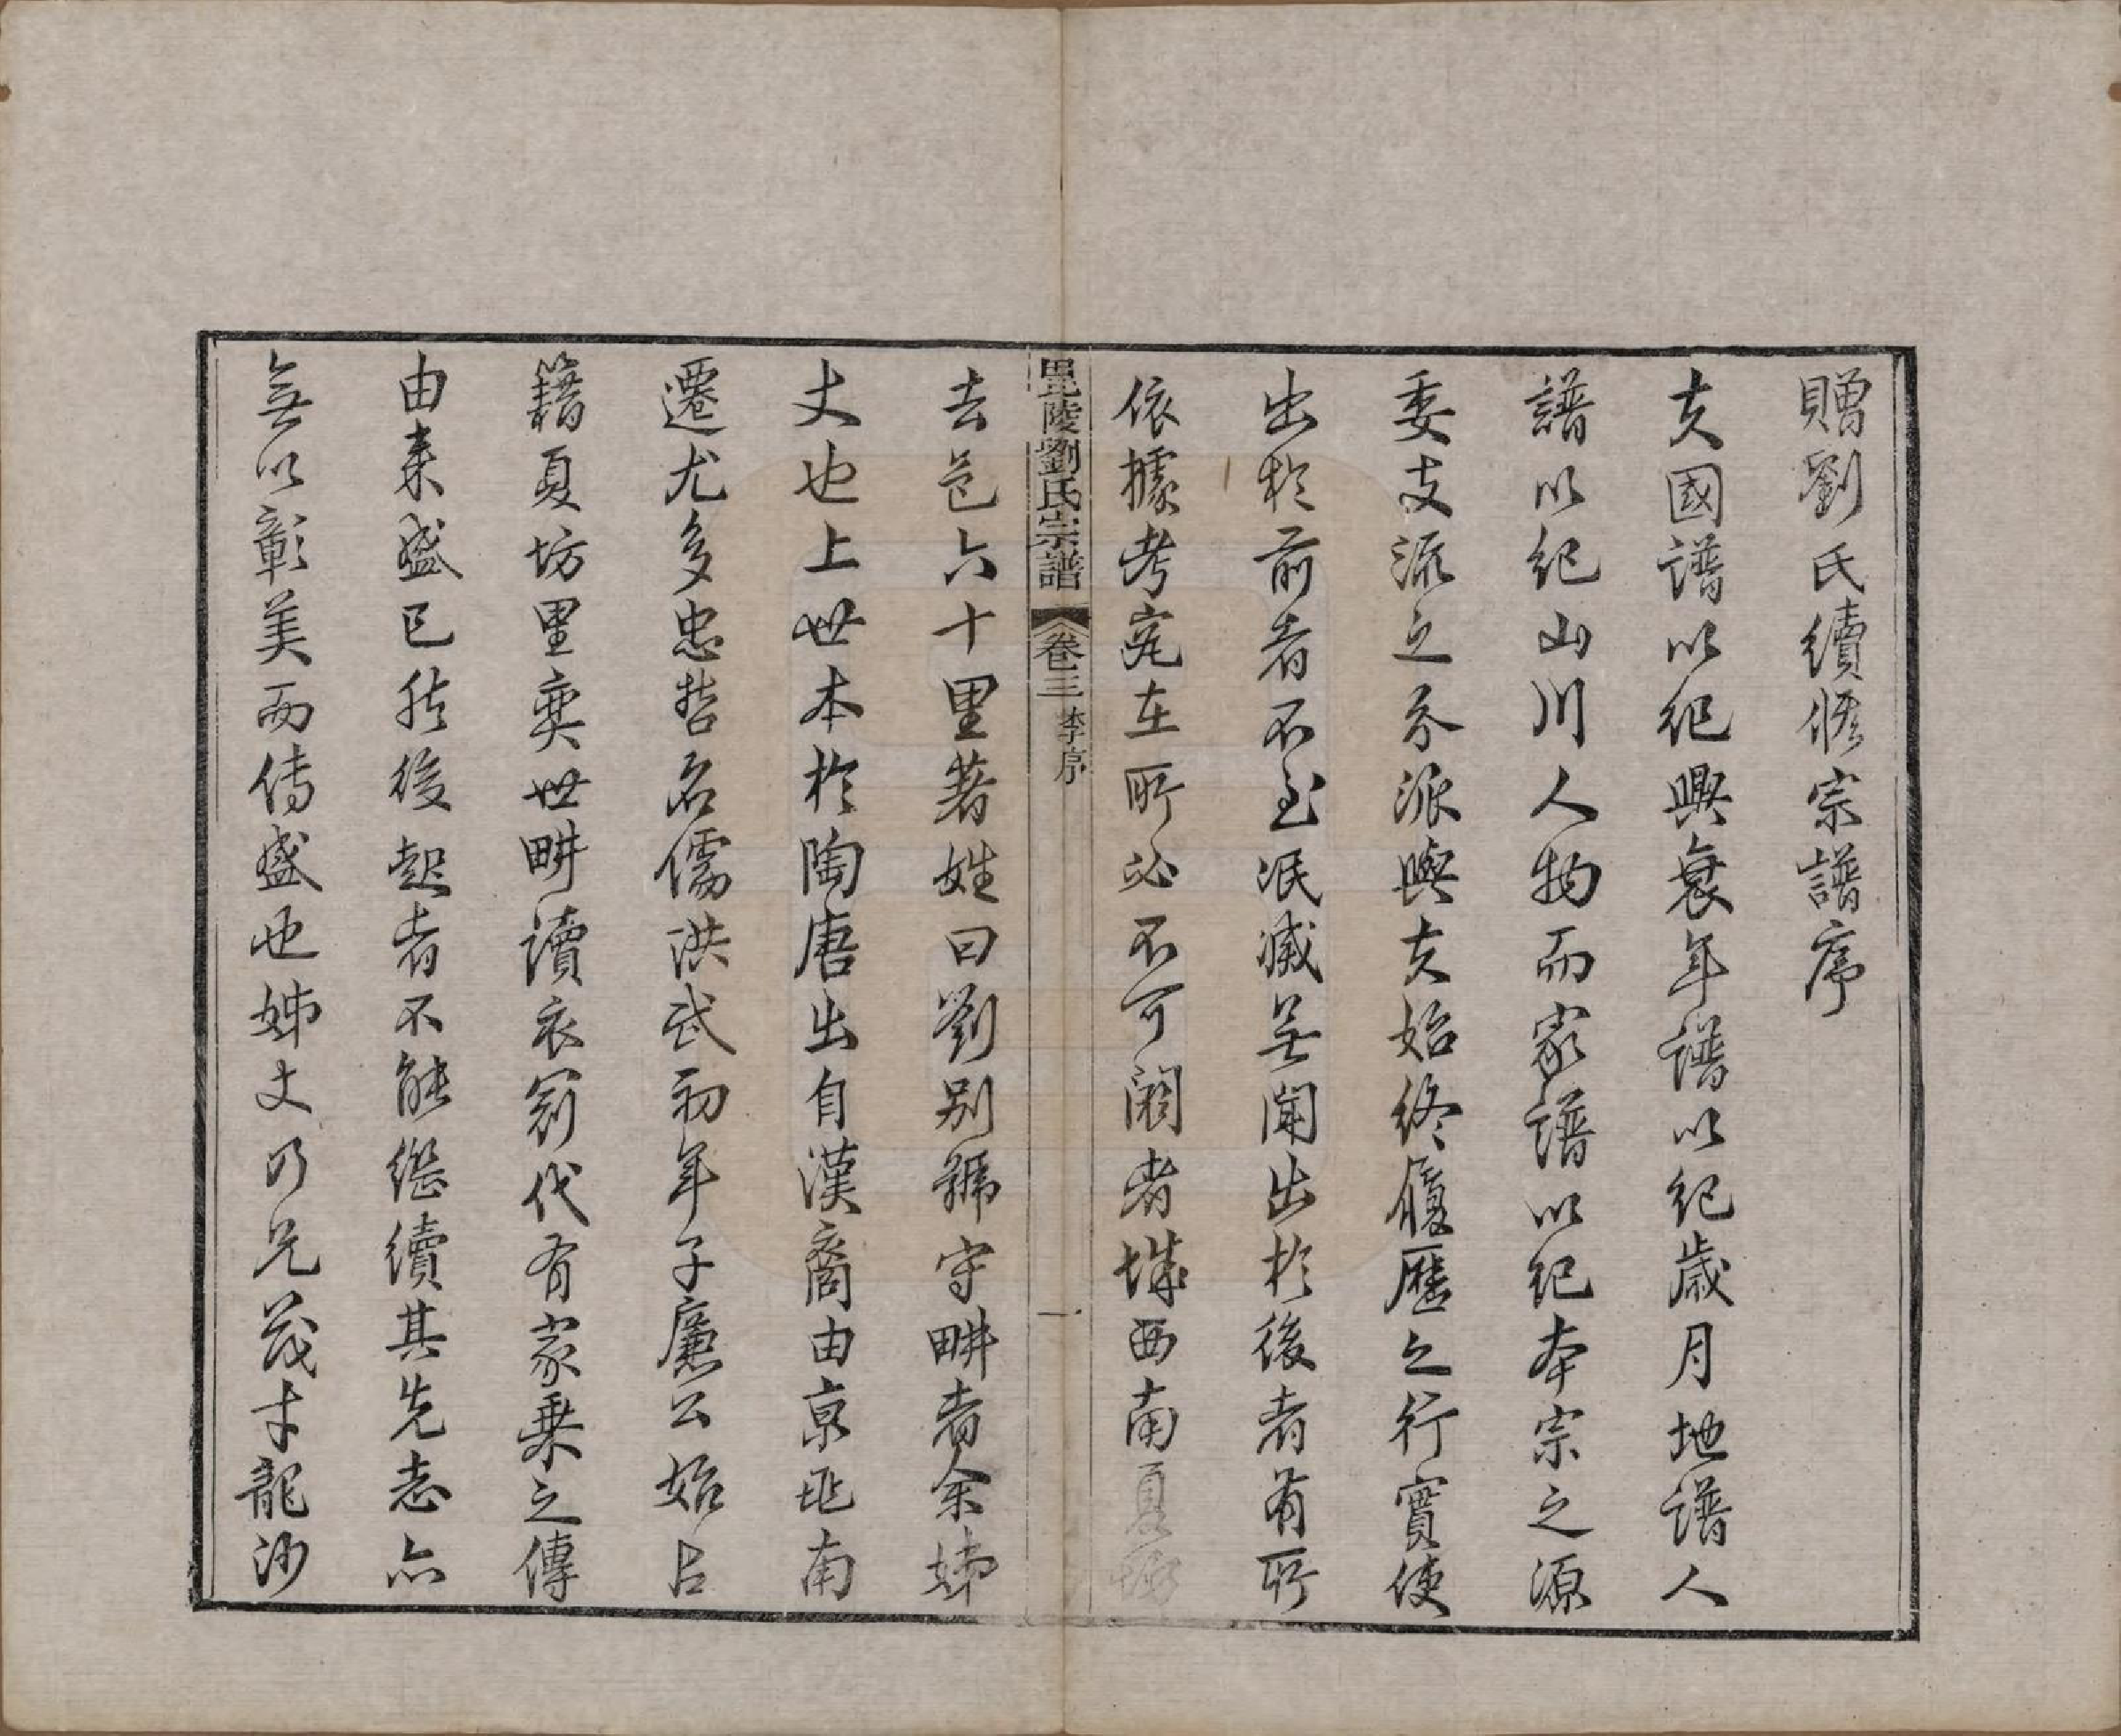 贈劉氏續修宗譜序
夫國譜以紀興衰年譜以紀歲月地譜人
譜以紀山川人物而家譜以紀本宗之源
委支流之分派與夫始終履歷之行實使
出於前者不至泯滅無聞出於後者有所
依據考究在所必不可闕者城西南夏坊
毘陵劉氏宗譜 卷三 李序 一
去邑六十里著姓曰劉別號守畊者余姊
丈也上世本於陶唐出自漢裔由京兆南
遷尤多忠哲名儒洪武初年子廉公始占
籍夏坊里奕世畊讀衣冠代有家乘之傳
由來盛已然後起者不能繼續其先志亦
無以彰美而傳盛也姊丈乃兄茂才龍沙